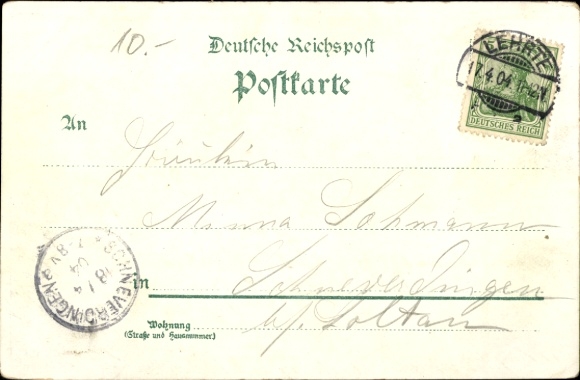 10.-
Deutsche Reichspost
Postkarte
LEHRTE
17.4.04
DEUTSCHES REICH
An
Fräulein
Minna Lohmann
SCHNEVERDINGEN
18.4
04
7-8V
in Schneverdingen
b/. Soltau
Wohnung
(Straße und Hausnummer)